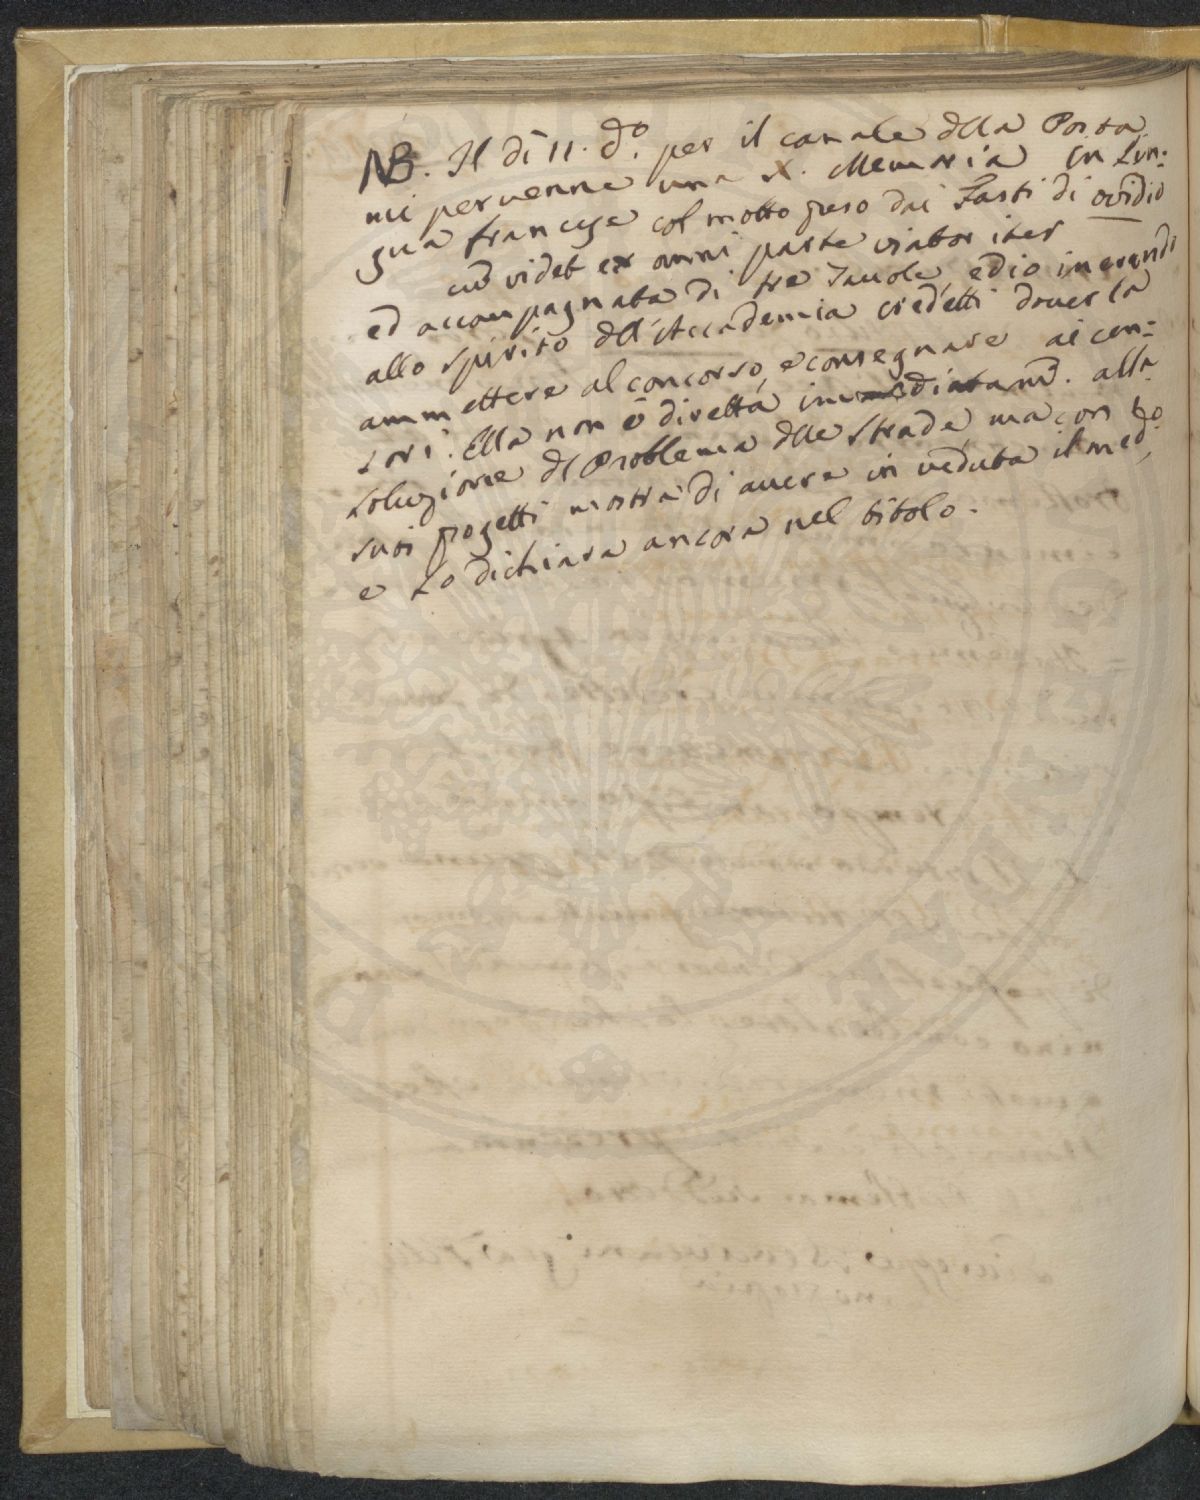 NB. Il dì 11. do. per il canale dlla Posta
mi pervenne una X. Memoria in Lin:
gua francese col motto preso dai Fasti di ovidio
cum videt ex omni parte viator iter
ed accompagnata di tre Tavole, ed io inerendo
allo spirito dll'Accademia credetti doverla
ammettere al concorso, e consegnare ai cen:
sori. Ella non è diretta immediatamte. alla
soluzione dl Problema dlle Strade, ma con
suoi progetti mostra di avere in veduta il medmo,
e lo dichiara ancora nel titolo.